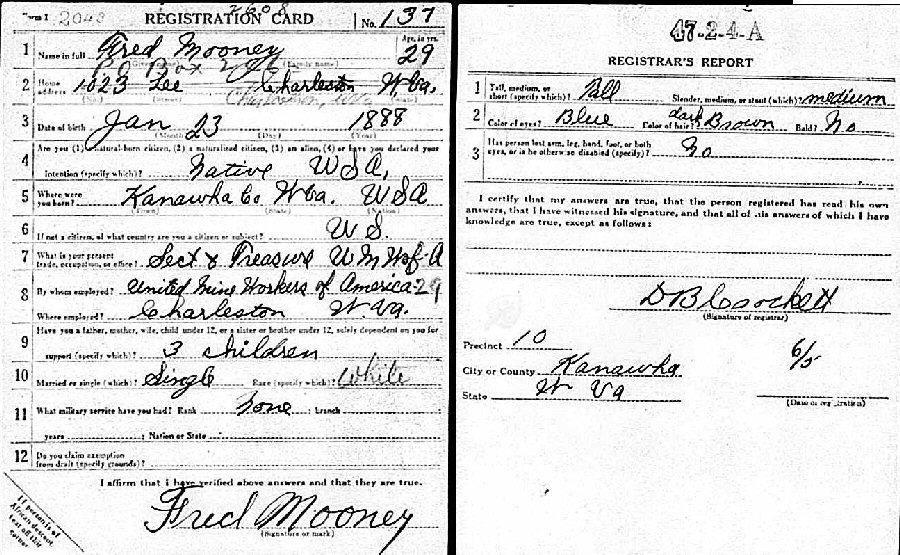 Form 1 2043 REGISTRATION CARD 2608 No. 137
1 Name in full Fred Mooney Age, in yrs. 29
(Given name) (Family name)
P O Box
2 Home address 1023 Lee Charleston W Va.
(No.) (Street) (State)
3 Date of birth Jan 23 1888
(Month) (Day) (Year)
Are you (1) a natural-born citizen, (2) a naturalized citizen, (3) an alien, (4) or have you declared your
4 intention (specify which)? Native USA,
5 Where were you born? Kanawha Co W Va. USA
(Town) (State) (Nation)
6 If not a citizen, of what country are you a citizen or subject? U S.
7 What is your present trade, occupation, or office? Sect & Treasure U M W of A
8 By whom employed? United Mine Workers of America 29
Where employed? Charleston W Va.
9 Have you a father, mother, wife, child under 12, or a sister or brother under 12, solely dependent on you for
support (specify which)? 3 children
10 Married or single (which)? Single Race (specify which)? White
11 What military service have you had? Rank none ; branch
years ; Nation or State
12 Do you claim exemption
from draft (specify grounds)?
I affirm that I have verified above answers and that they are true.
Fred Mooney
(Signature or mark)
If person is of
African descent,
tear off this
corner
47-2-4-A
REGISTRAR'S REPORT
1 Tall, medium, or short (specify which)? Tall Slender, medium, or stout (which)? medium
2 Color of eyes? Blue Color of hair? dark Brown Bald? No
3 Has person lost arm, leg, hand, foot, or both
eyes, or is he otherwise disabled (specify)? No
I certify that my answers are true, that the person registered has read his own
answers, that I have witnessed his signature, and that all of his answers of which I have
knowledge are true, except as follows:
D B Crockett
(Signature of registrar)
Precinct 10
City or County Kanawha 6/5
State W Va
(Date of registration)